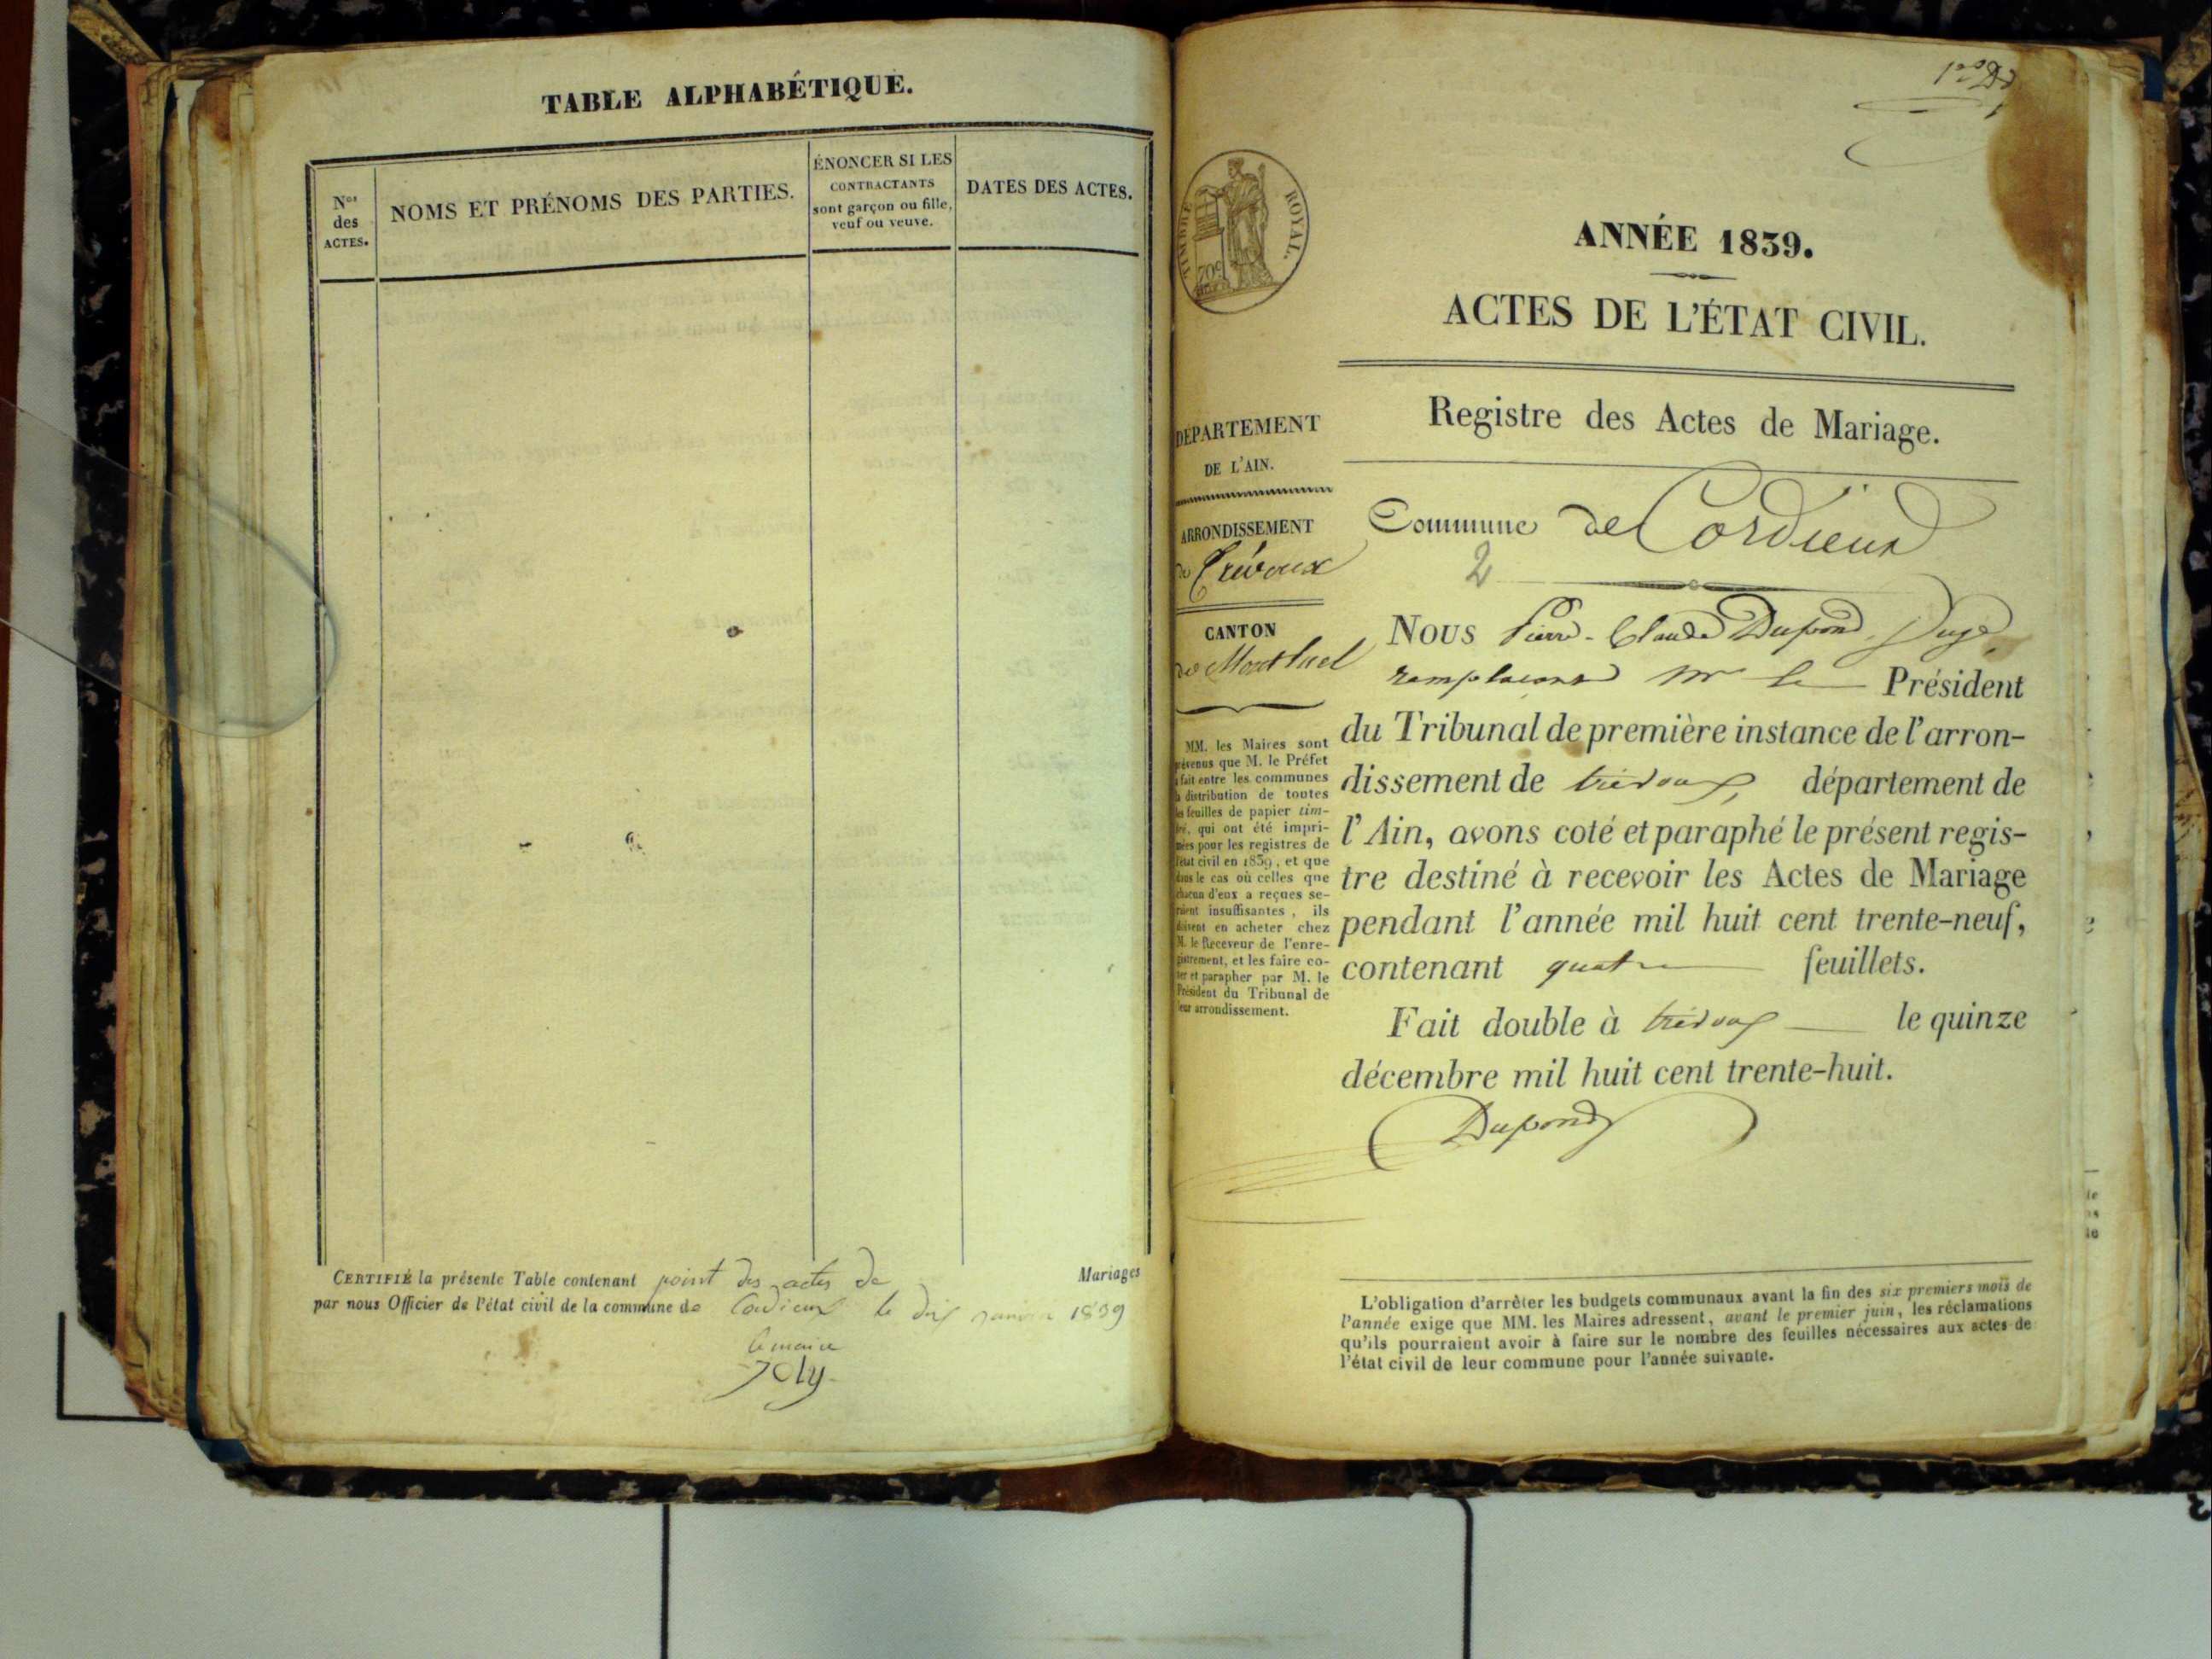 TABLE ALPHABÉTIQUE.
Nos
des
ACTES.
NOMS ET PRÉNOMS DES PARTIES.
ÉNONCER SI LES
CONTRACTANTS
sont garçon ou fille,
veuf ou veuve.
DATES DES ACTES.
CERTIFIÉ la présente Table contenant point des actes de Mariages
par nous Officier de l'état civil de la commune de Cordieux le dix janvier 1839
le maire
Joly
TIMBRE ROYAL.
70c
ANNÉE 1839.
ACTES DE L'ÉTAT CIVIL.
Registre des Actes de Mariage.
DÉPARTEMENT
DE L'AIN.
ARRONDISSEMENT
de Trévoux
CANTON
de Montluel
MM. les Maires sont
prévenus que M. le Préfet
a fait entre les communes
la distribution de toutes
les feuilles de papier tim-
bré, qui ont été impri-
mées pour les registres de
l'état civil en 1839, et que
dans le cas où celles que
chacun d'eux a reçues se-
raient insuffisantes, ils
doivent en acheter chez
M. le Receveur de l'enre-
gistrement, et les faire co-
ter et parapher par M. le
Président du Tribunal de
leur arrondissement.
Commune de Cordieux
2
NOUS Pierre-Claude Dupond, Juge,
remplaçant Mr le Président
du Tribunal de première instance de l'arron-
dissement de trévoux, département de
l'Ain, avons coté et paraphé le présent regis-
tre destiné à recevoir les Actes de Mariage
pendant l'année mil huit cent trente-neuf,
contenant quatre feuillets.
Fait double à trévoux le quinze
décembre mil huit cent trente-huit.
Dupond
L'obligation d'arrêter les budgets communaux avant la fin des six premiers mois de
l'année exige que MM. les Maires adressent, avant le premier juin, les réclamations
qu'ils pourraient avoir à faire sur le nombre des feuilles nécessaires aux actes de
l'état civil de leur commune pour l'année suivante.